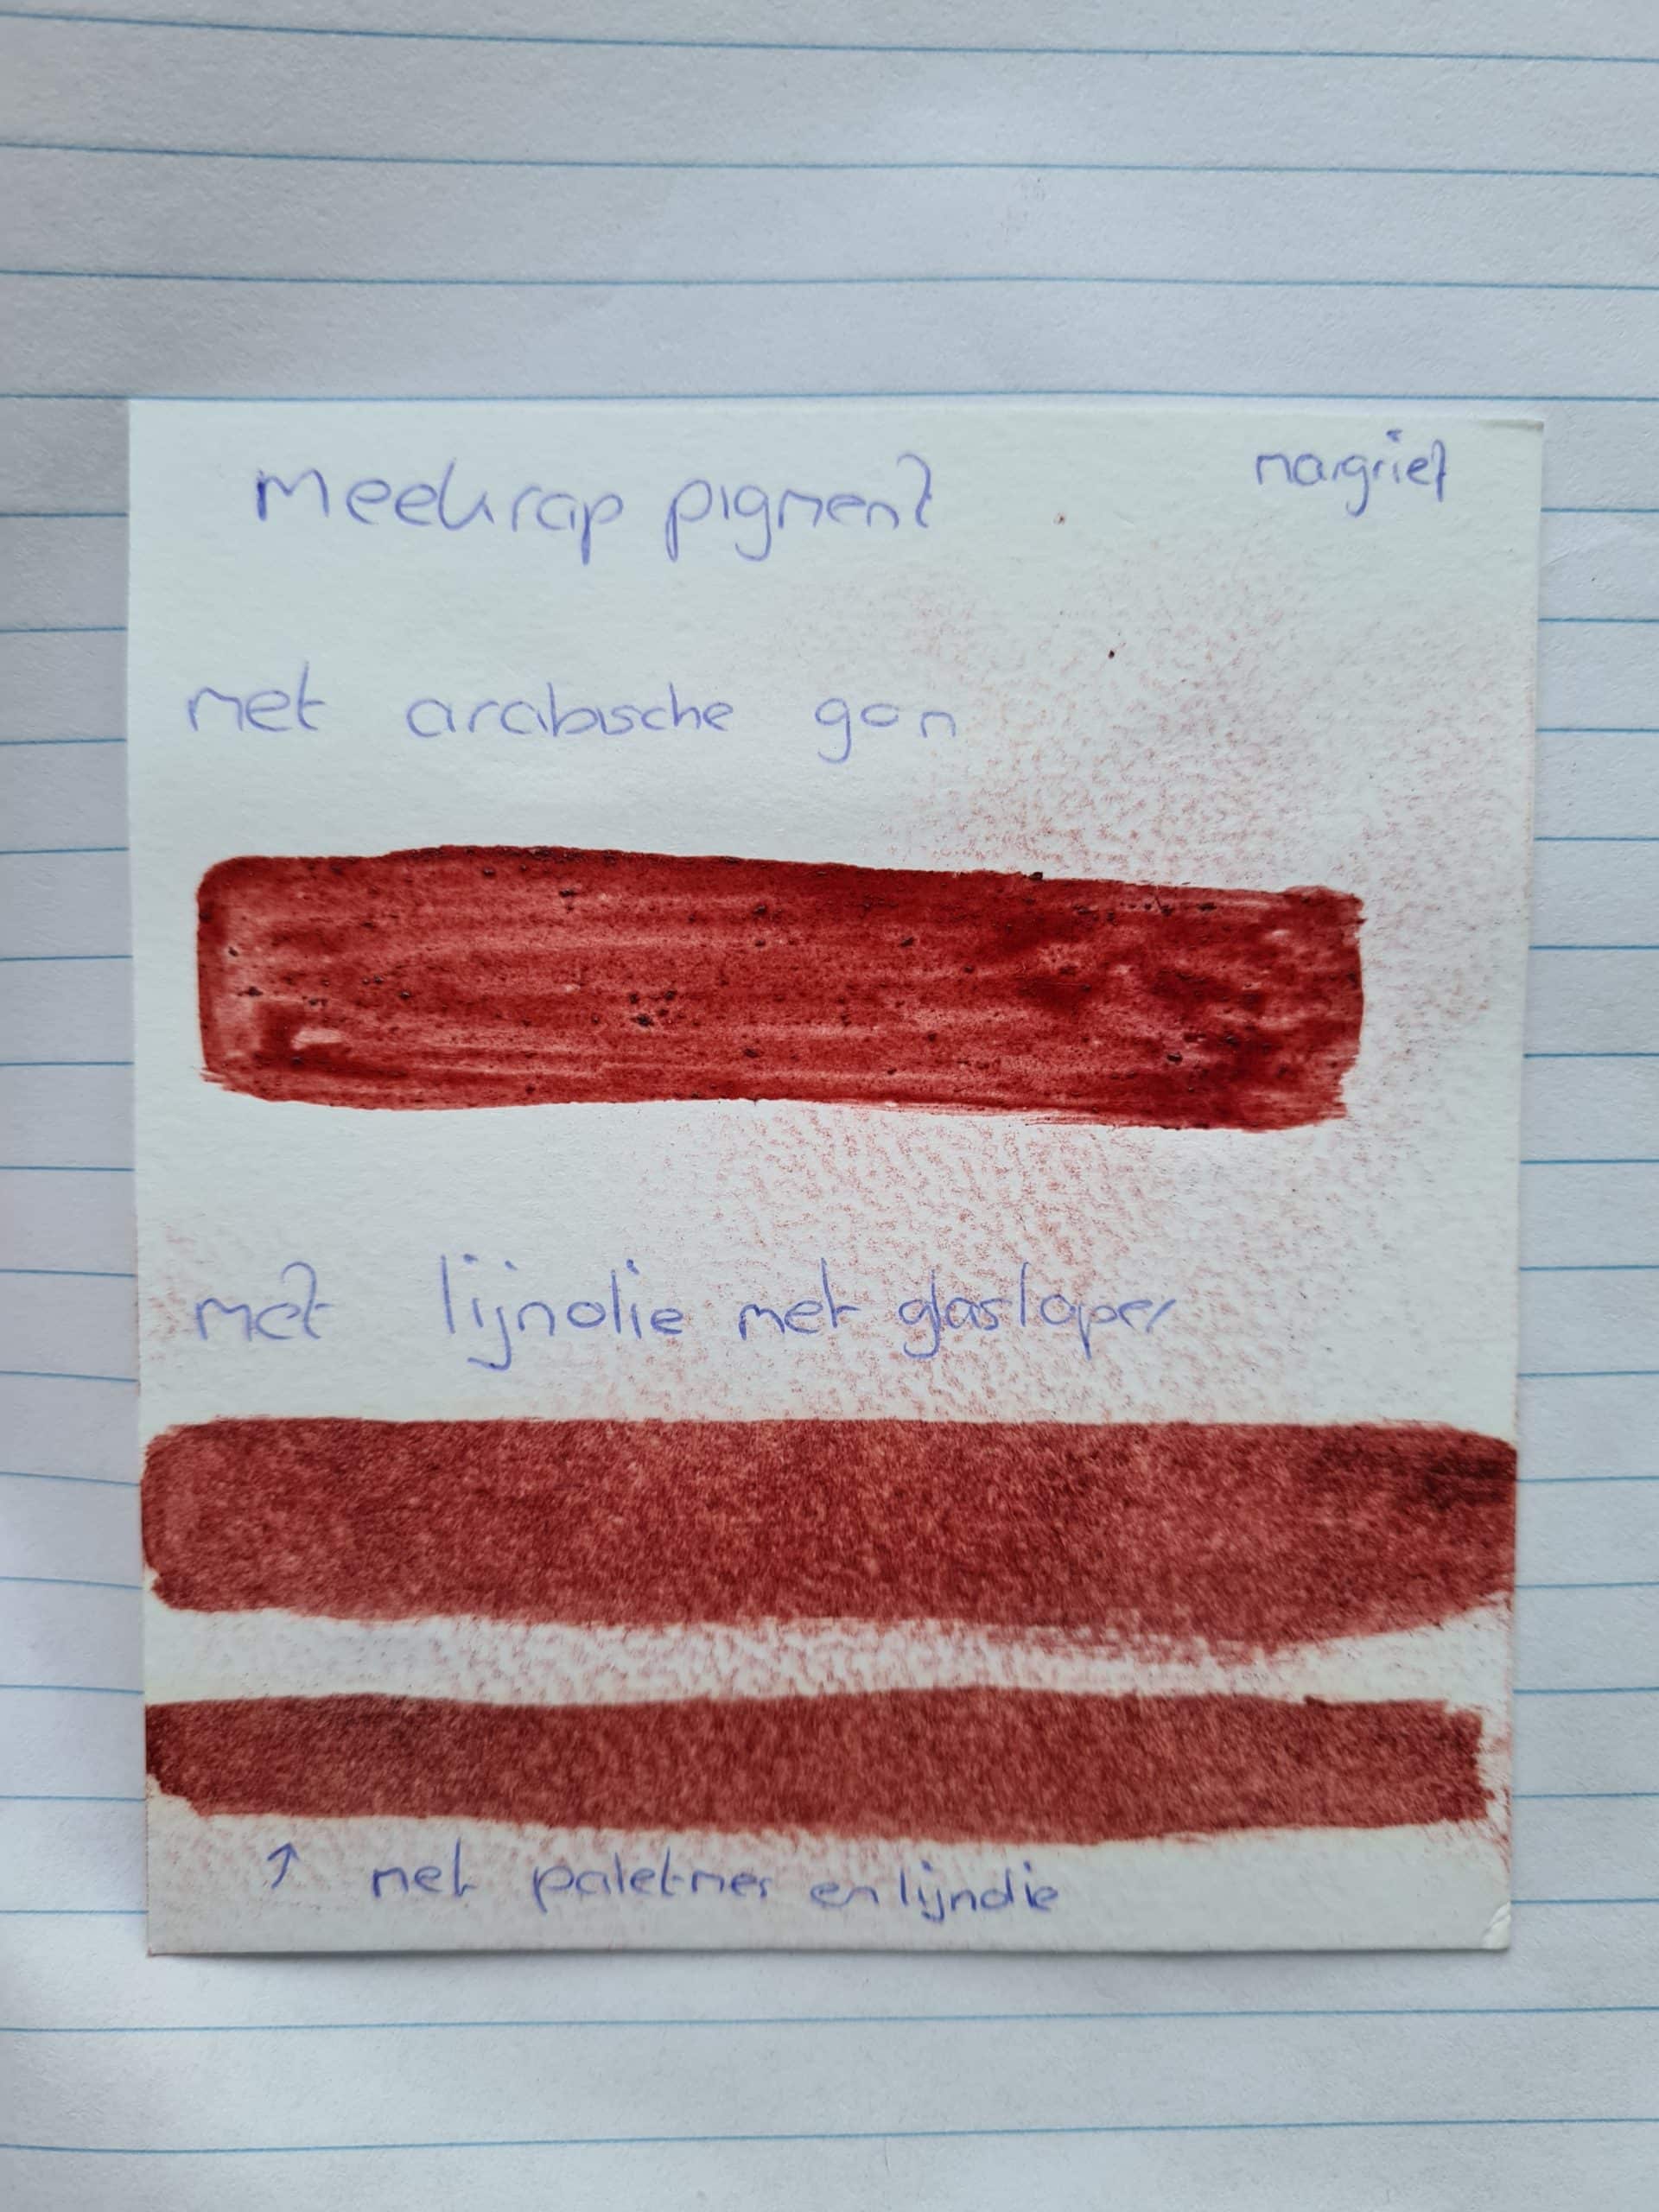 Meekrap pigment
margriet
met arabische gom
met lijnolie met glasloper
↑ met paletmes en lijnolie